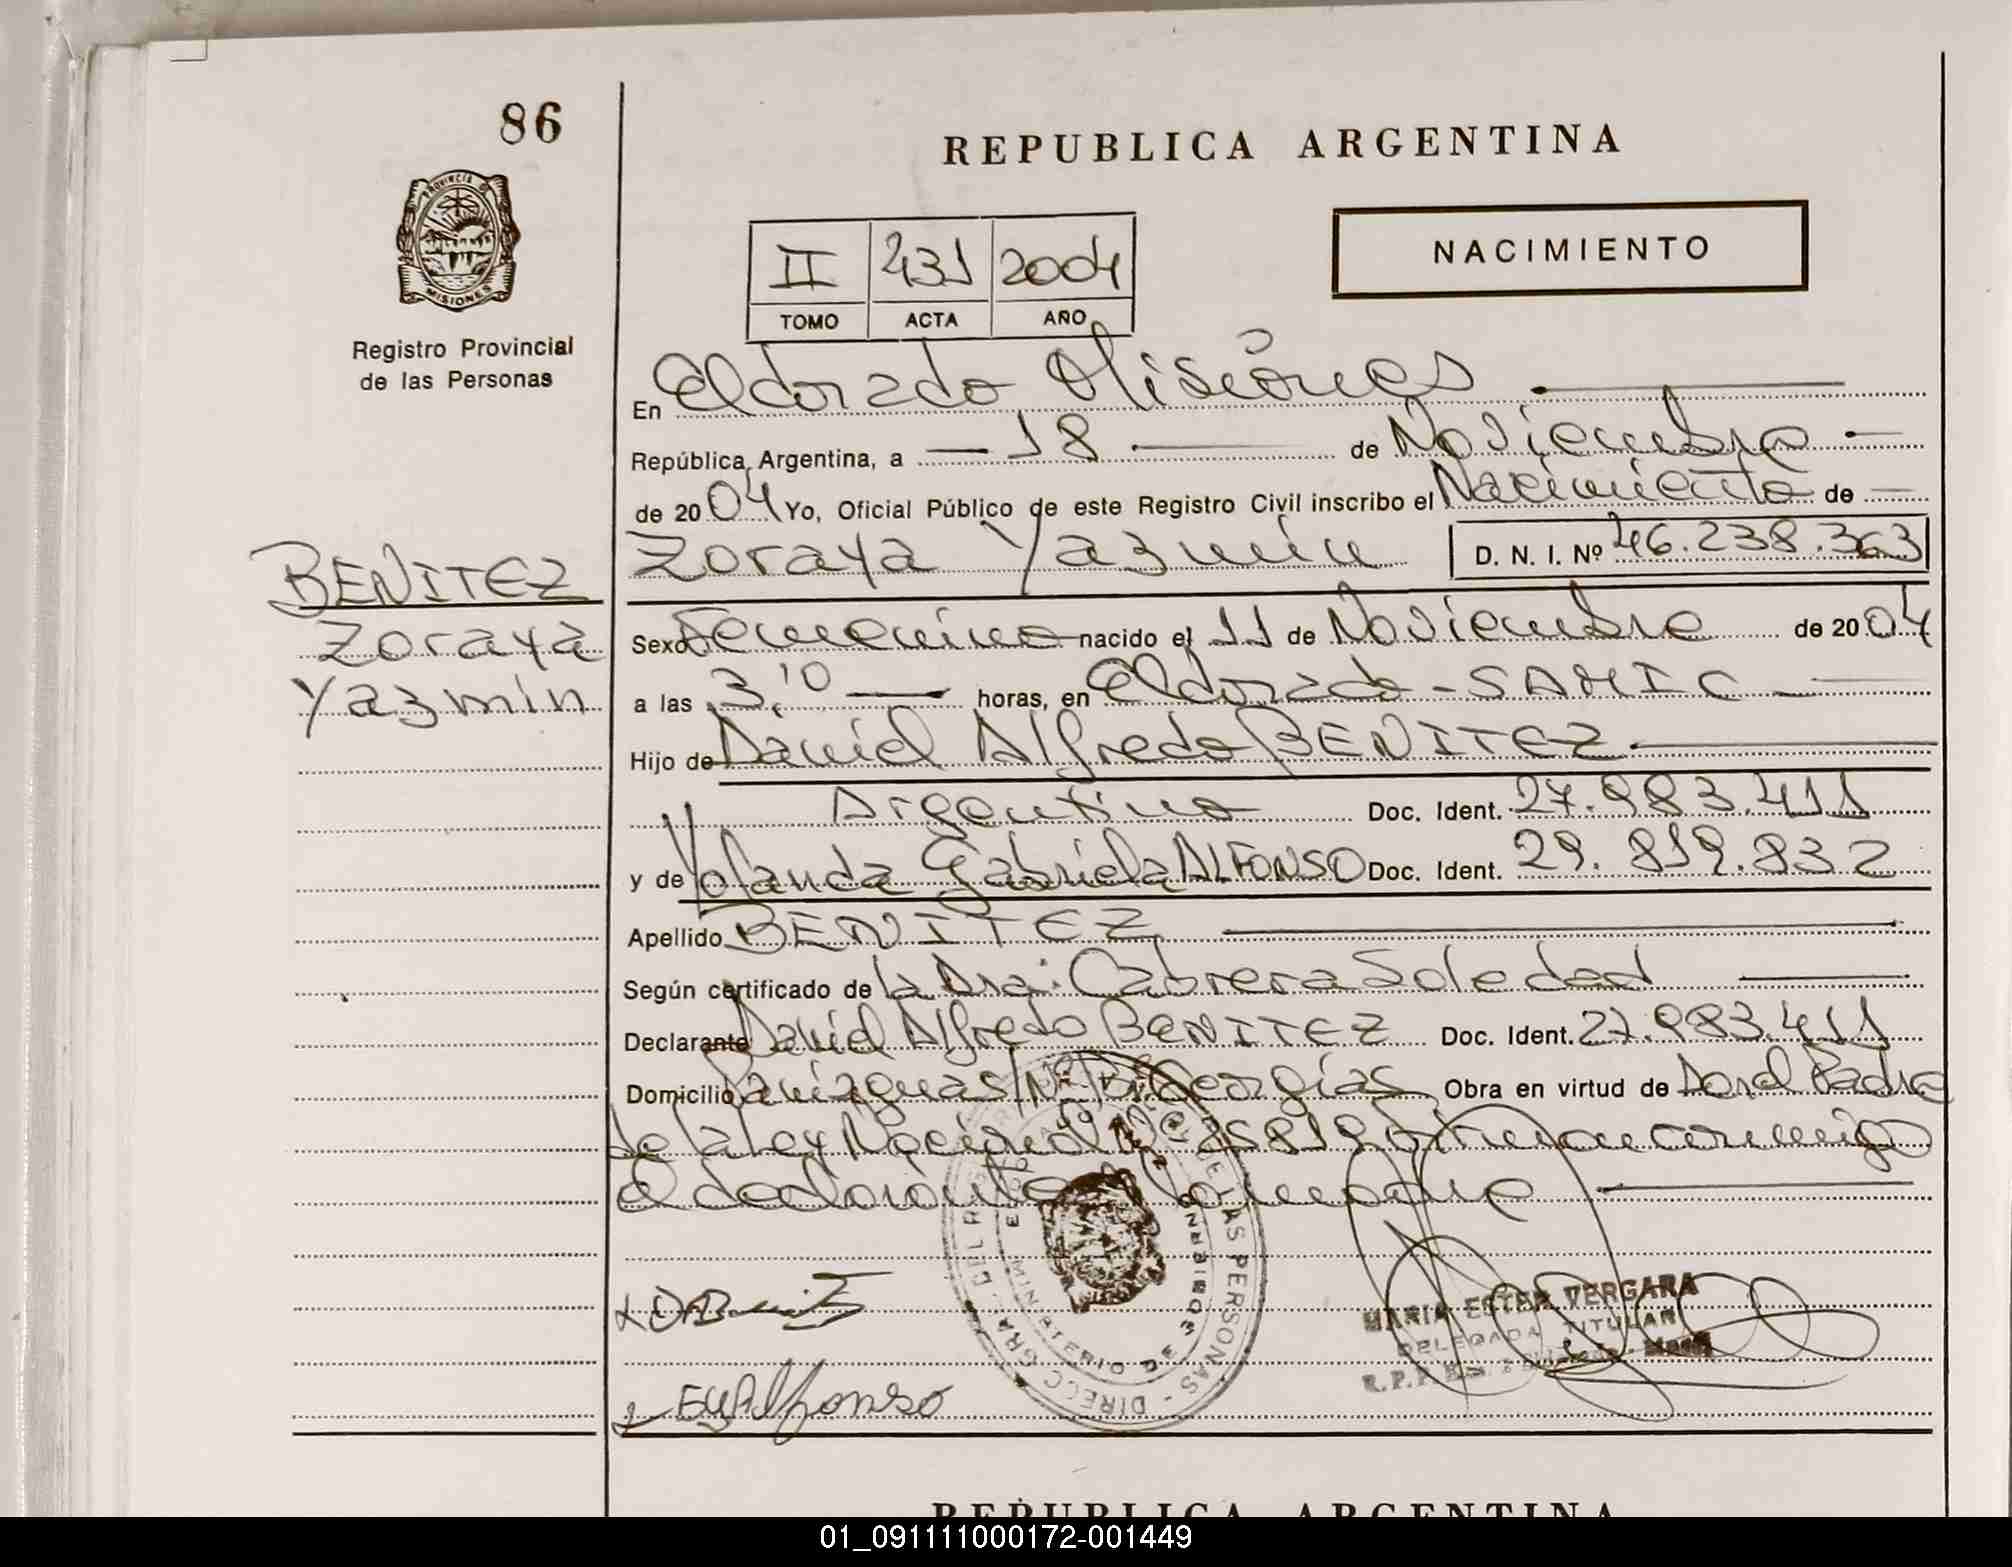 86
REPUBLICA ARGENTINA
PROVINCIA DE
MISIONES
Registro Provincial
de las Personas
II 431 2004
TOMO ACTA AÑO
NACIMIENTO
En Eldorado Misiones
República Argentina, a 18 de Noviembre
de 2004 Yo, Oficial Público de este Registro Civil inscribo el Nacimiento de
Zoraya Yazmin D. N. I. Nº 46.238.363
BENITEZ
Zoraya
Yazmin
Sexo Femenino nacido el 11 de Noviembre de 2004
a las 3,10 horas, en Eldorado - SAMIC
Hijo de Daniel Alfredo BENITEZ
Argentino Doc. Ident. 27.983.411
y de Yolanda Gabriela ALFONSO Doc. Ident. 29.819.832
Apellido BENITEZ
Según certificado de la Dra. Cabrera Soledad
Declarante Daniel Alfredo BENITEZ Doc. Ident. 27.983.411
Domicilio Georgias Obra en virtud de Padre
de la Ley Nacional Nº 25819 firman conmigo
el declarante la madre
DIRECC. GRAL. DEL REG. DE LAS PERSONAS
MINISTERIO DE GOBIERNO
MARIA ESTER VERGARA
DELEGADA TITULAR
R.P.P.
Alfonso
REPUBLICA ARGENTINA
01_091111000172-001449